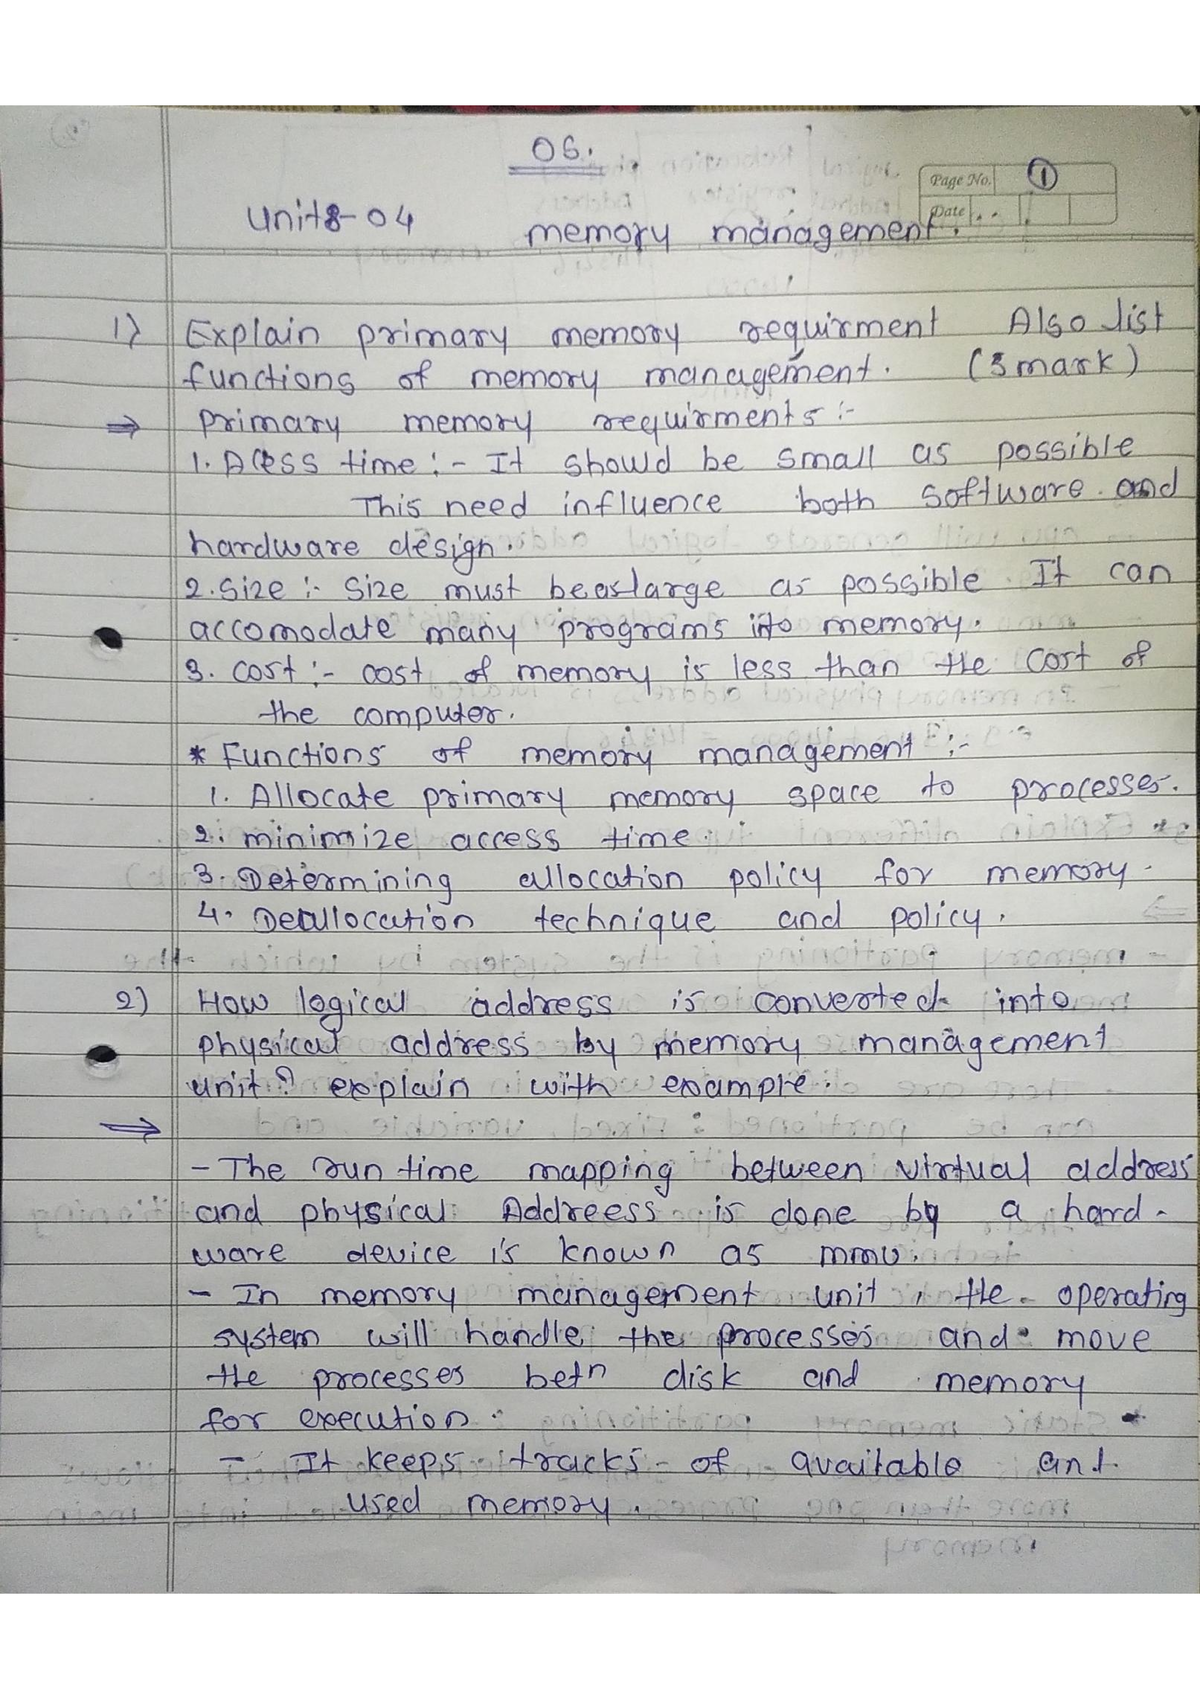 OS.
Page No. 1
Date
Unit:-04 memory management.
1) Explain primary memory requirment Also list
functions of memory management. (3 mark)
⇒ primary memory requirments :-
1. Acess time :- It should be small as possible
This need influence both software and
hardware design.
2. Size :- Size must be as large as possible. It can
accomodate many programs into memory.
3. cost :- cost of memory is less than the cost of
the computer.
* Functions of memory management :-
1. Allocate primary memory space to processes.
2. minimize access time.
3. Determining allocation policy for memory.
4. Deallocation technique and policy.
2) How logical address is converted into
physical address by memory management
unit? explain with example.
⇒
- The run time mapping between virtual address
and physical Addreess is done by a hard-
ware device is known as mmu.
- In memory management unit, the operating
system will handle the processes and move
the processes betn disk and memory
for execution.
- It keeps tracks of available and
used memory.